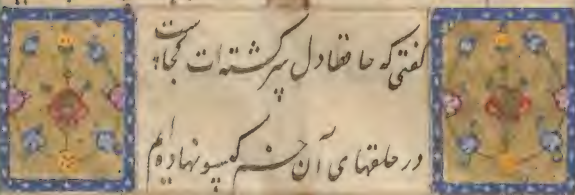 گفتی که حافظا دل سرگشته ات کجاست
در حلقهای آن خم گیسو نهاده ایم